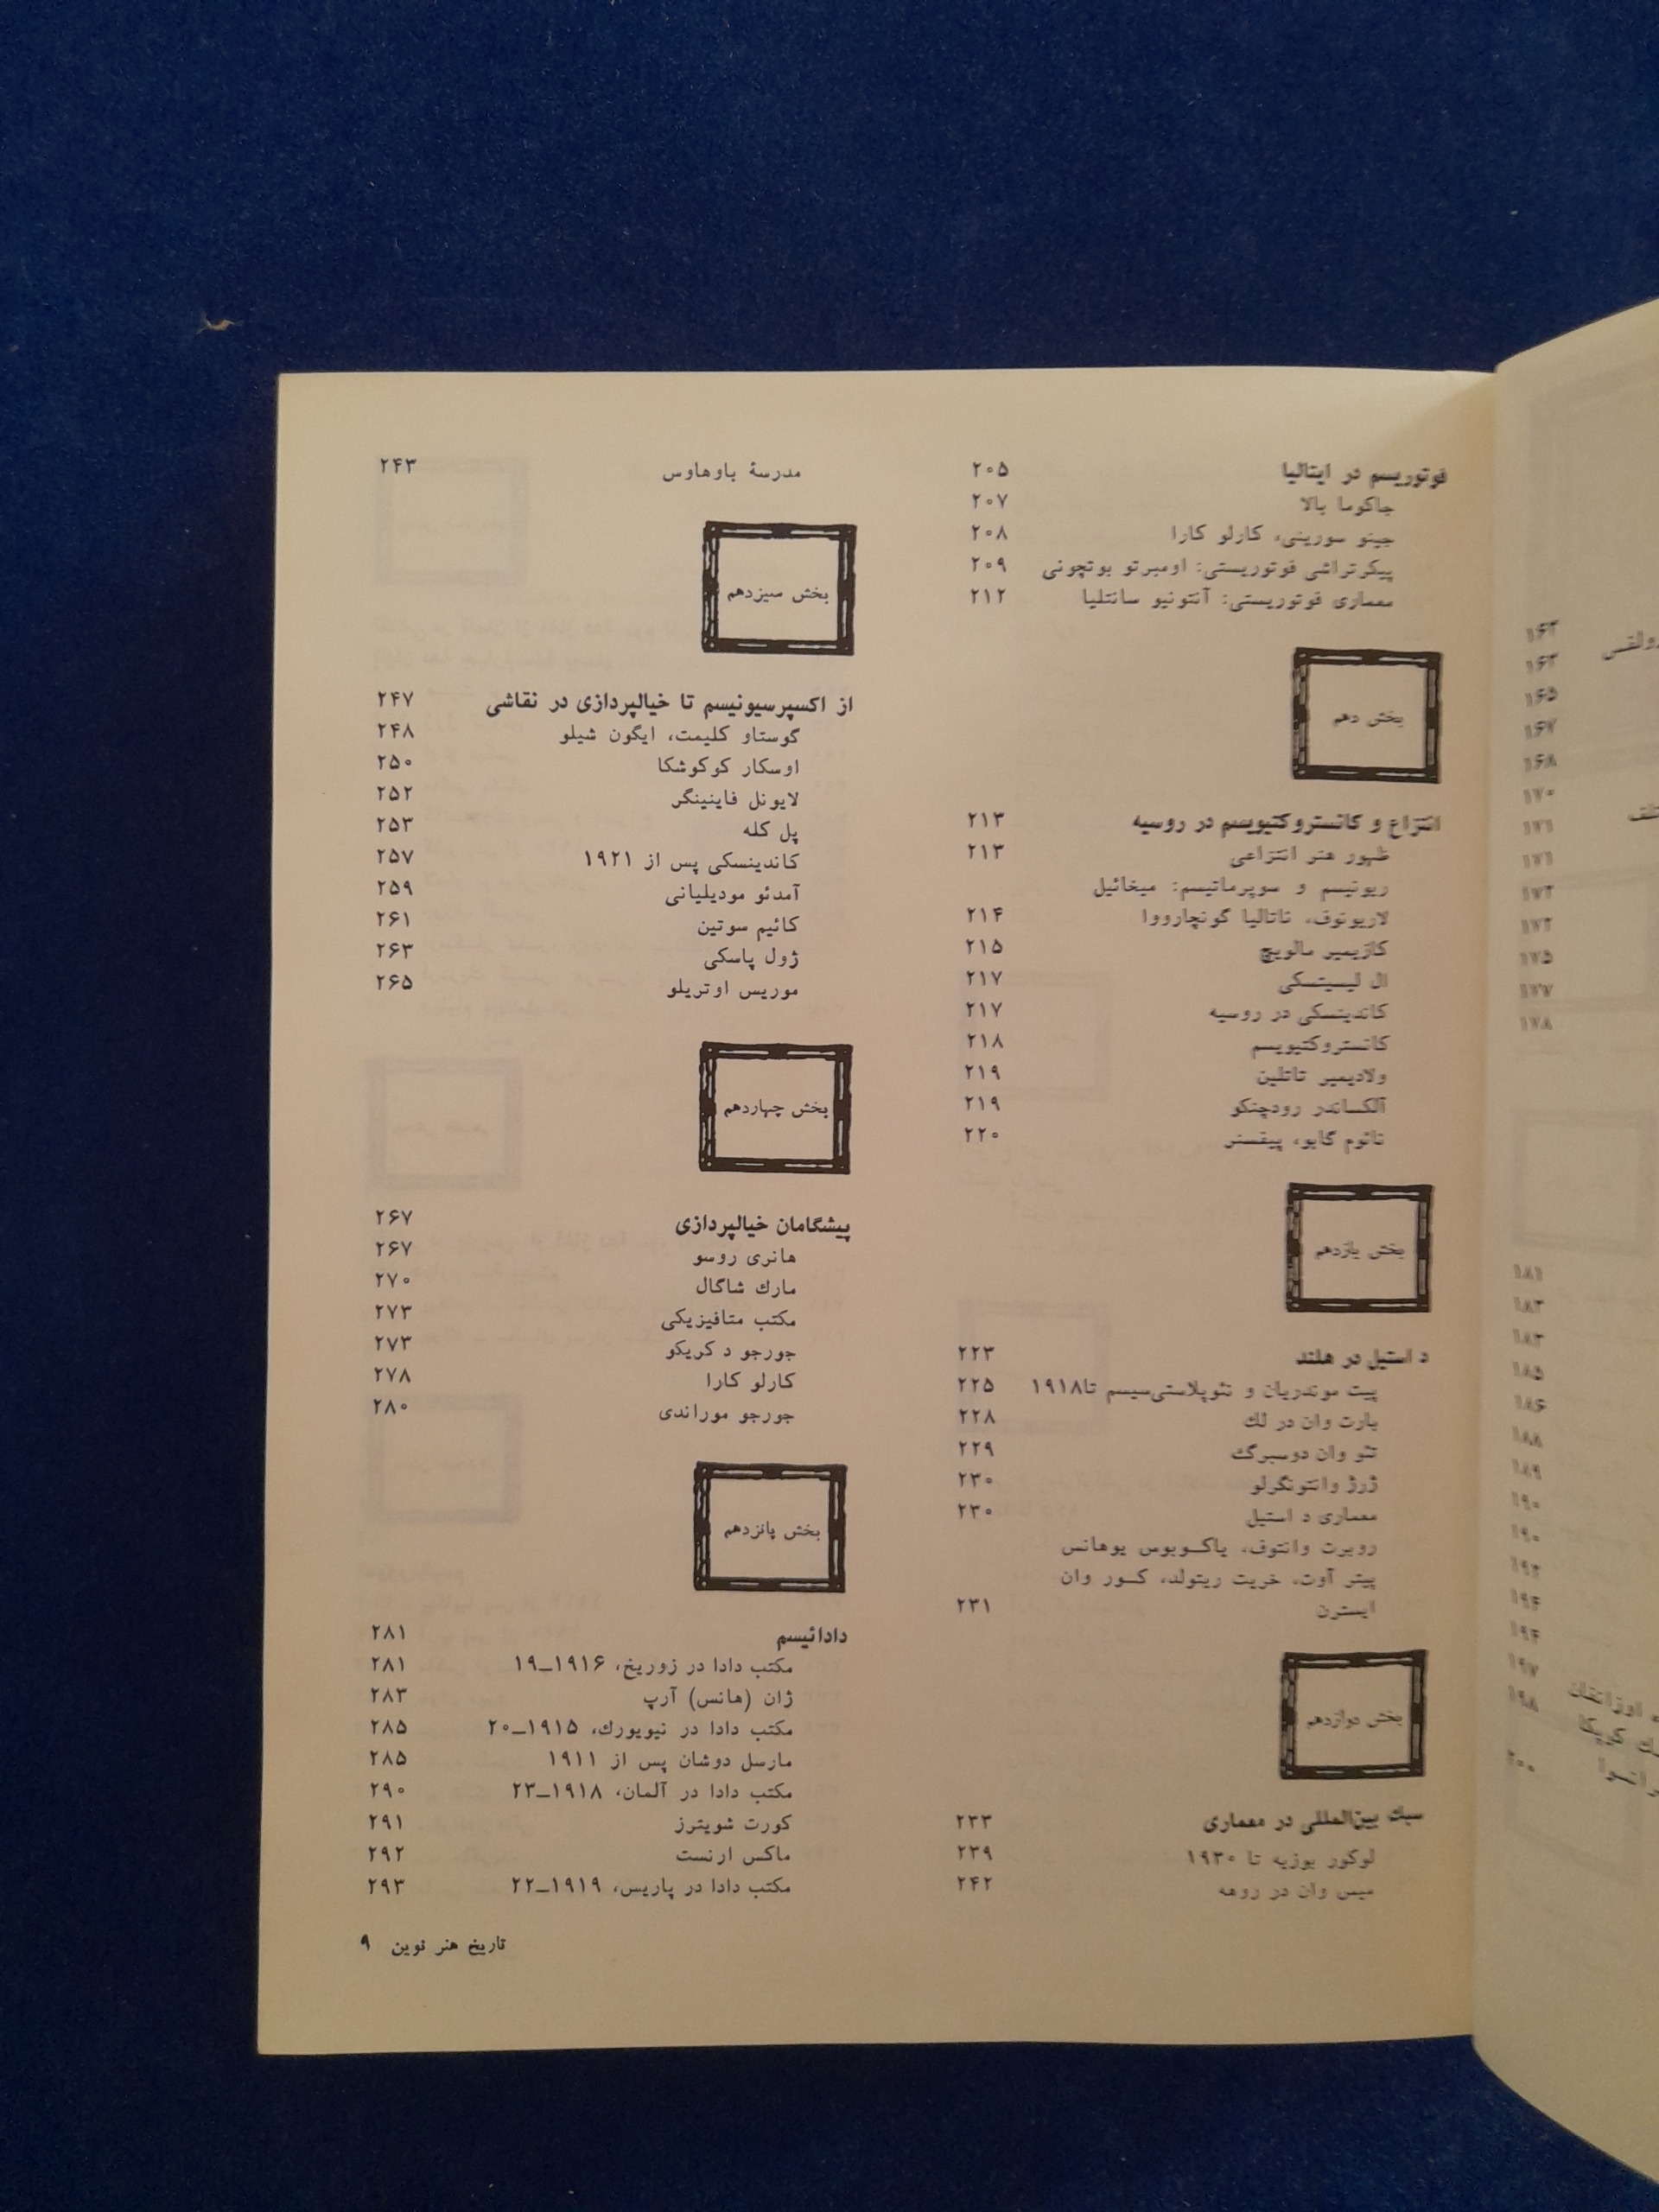 فوتوریسم در ایتالیا ۲۰۵
جاکوما بالا ۲۰۷
جینو سورینی، کارلو کارا ۲۰۸
پیکرتراشی فوتوریستی: اومبرتو بوتچونی ۲۰۹
معماری فوتوریستی: آنتونیو سانتلیا ۲۱۲
بخش دهم
انتزاع و کانستروکتیویسم در روسیه ۲۱۳
ظهور هنر انتزاعی ۲۱۳
ریونیسم و سوپرماتیسم: میخائیل
لاریونوف، ناتالیا گونچارووا ۲۱۴
کازیمیر مالویچ ۲۱۵
ال لیسیتسکی ۲۱۷
کاندینسکی در روسیه ۲۱۷
کانستروکتیویسم ۲۱۸
ولادیمیر تاتلین ۲۱۹
آلکساندر رودچنکو ۲۱۹
نائوم گابو، پیفسنر ۲۲۰
بخش یازدهم
د استیل در هلند ۲۲۳
پیت موندریان و نئوپلاستی‌سیسم تا۱۹۱۸ ۲۲۵
بارت وان در لك ۲۲۸
تئو وان دوسبرگ ۲۲۹
ژرژ وانتونگرلو ۲۳۰
معماری د استیل ۲۳۰
روبرت وانتوف، یاکوبوس یوهانس
پیتر آوت، خریت ریتولد، کور وان
ایسترن ۲۳۱
بخش دوازدهم
سبك بین‌المللی در معماری ۲۳۳
لوکور بوزیه تا ۱۹۳۰ ۲۳۹
میس وان در روهه ۲۴۲
مدرسهٔ باوهاوس ۲۴۳
بخش سیزدهم
از اکسپرسیونیسم تا خیالپردازی در نقاشی ۲۴۷
گوستاو کلیمت، ایگون شیلو ۲۴۸
اوسکار کوکوشکا ۲۵۰
لایونل فاینینگر ۲۵۲
پل کله ۲۵۳
کاندینسکی پس از ۱۹۲۱ ۲۵۷
آمدئو مودیلیانی ۲۵۹
کائیم سوتین ۲۶۱
ژول پاسکی ۲۶۳
موریس اوتریلو ۲۶۵
بخش چهاردهم
پیشگامان خیالپردازی ۲۶۷
هانری روسو ۲۶۷
مارك شاگال ۲۷۰
مکتب متافیزیکی ۲۷۳
جورجو د کریکو ۲۷۳
کارلو کارا ۲۷۸
جورجو موراندی ۲۸۰
بخش پانزدهم
دادائیسم ۲۸۱
مکتب دادا در زوریخ، ۱۹۱۶–۱۹ ۲۸۱
ژان (هانس) آرپ ۲۸۳
مکتب دادا در نیویورك، ۱۹۱۵–۲۰ ۲۸۵
مارسل دوشان پس از ۱۹۱۱ ۲۸۵
مکتب دادا در آلمان، ۱۹۱۸–۲۳ ۲۹۰
کورت شویترز ۲۹۱
ماکس ارنست ۲۹۲
مکتب دادا در پاریس، ۱۹۱۹–۲۲ ۲۹۳
تاریخ هنر نوین ۹